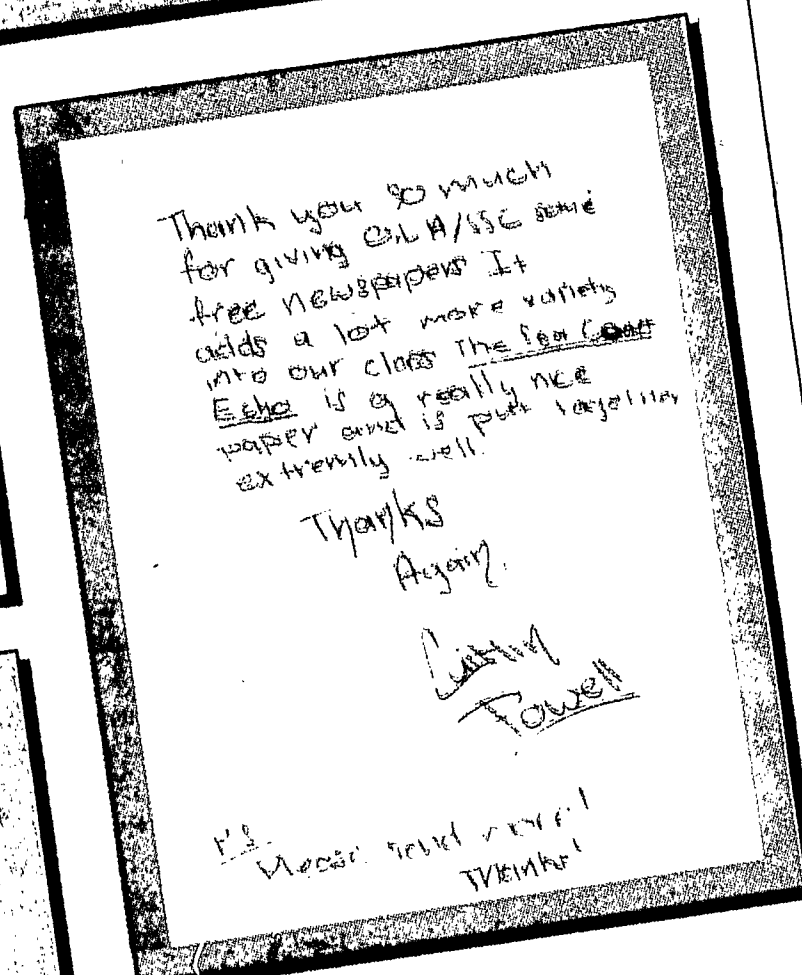 Thank you so much
for giving O.L.A/SSC some
free newspapers It
adds a lot more variety
into our class The Sea Coast
Echo is a really nice
paper and is put together
extremly well.
Thanks
Again.
Caitlin
Powell
P.S.
Please send more!
Thanks!